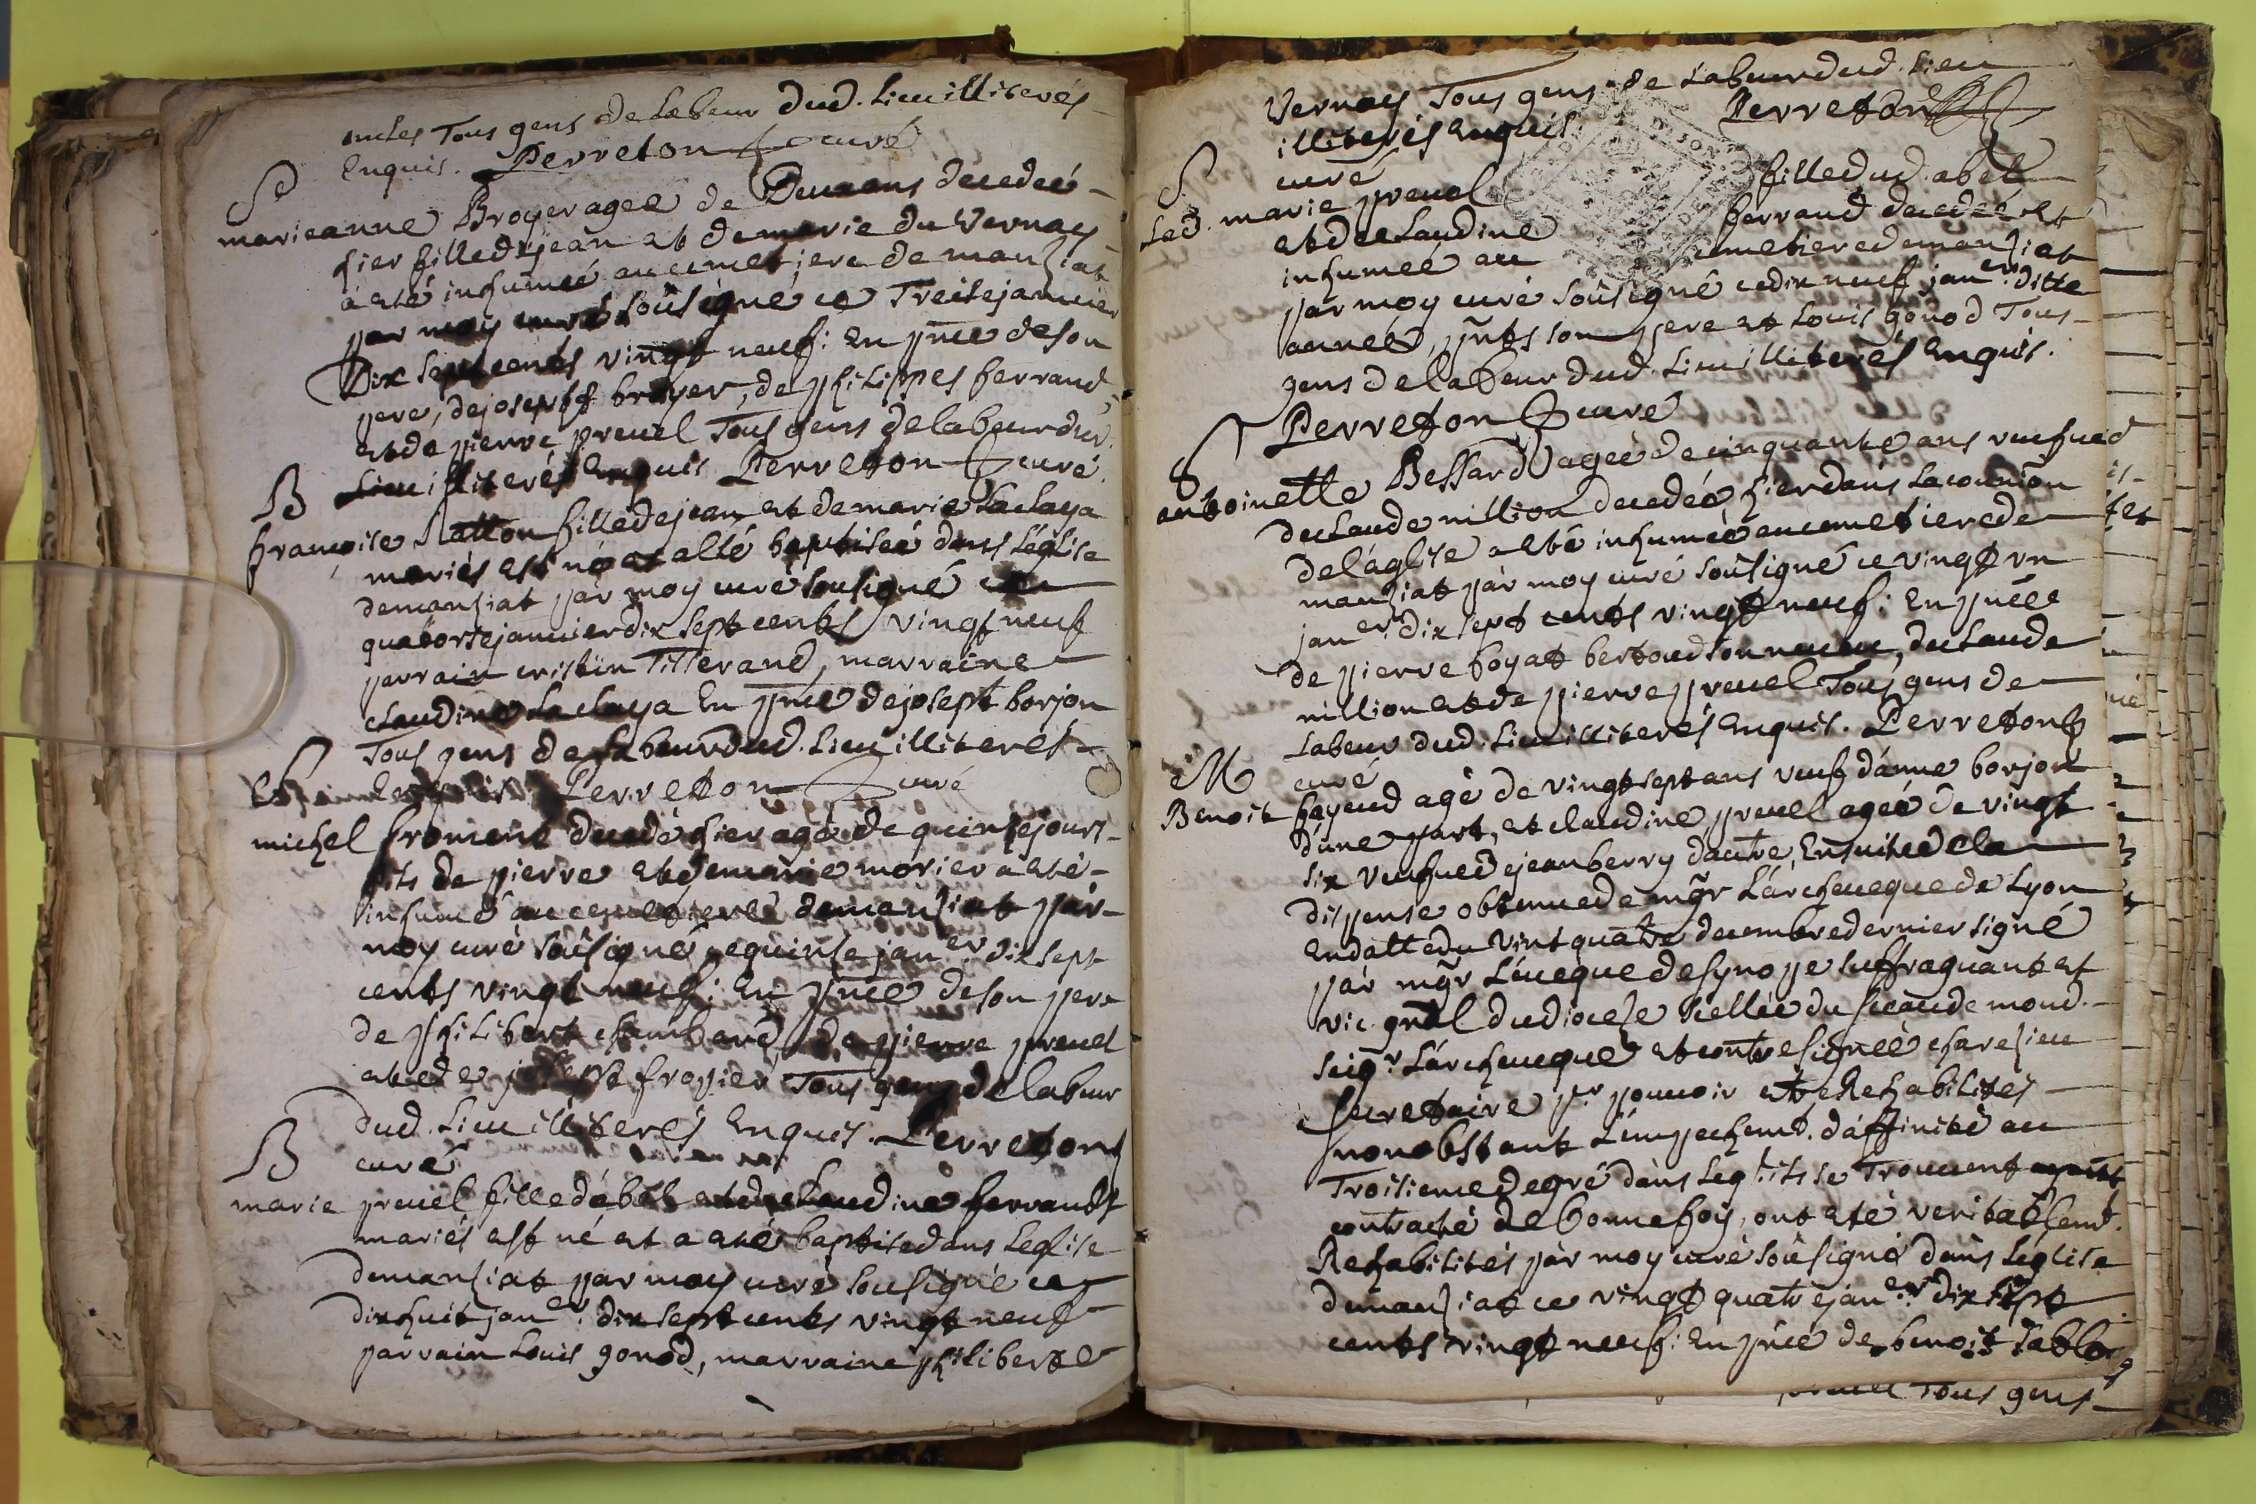 oncles Tous gens de Labeur dud. Lieu illiterés
Enquis. Perreton curé
S
marieanne Broyer agee de Deux ans decedeé
hier fille de jean et de marie du Vernay
à eté inhumeé au cimetiere de manziat
par moy curé soûsigné ce Treize janvier
Dix sept cents vingt neuf: En pnce de son
pere, de joseph broyer, de philippes ferrand
et de pierre preuel Tous gens de labeur dud.
Lieu illiterés Enquis Perreton curé
B
françoise Ratton fille de jean et de marie Laclaya
mariés est né et a esté baptiseé dans Léglise
de manziat par moy curé sousigné ce
quatorze janvier dix sept cents vingt neuf
parrain cristin Tisserand, marraine
claudine Laclaya En pnce de joseph borjon
Tous gens de Labeur dud. Lieu illiterés
Enquis. Perreton curé
S
michel froment decedé hier agé de quinze jours
fils de pierre et de marie morier a eté
inhumé au cimetiere de manziat par
moy curé soûsigné ce quinze janer. dix sept
cents vingt neuf: En pnce de son pere
de philibert chambard, de pierre preuel
et de josepf frapier Tous gens de labeur
dud. Lieu illiterés Enquis. Perreton
curé
B
marie preuel fille d'abel et de claudine ferrandt
mariés est né et a eté baptise dans Leglise
de manziat par moy curé sousigné ce
dix huit janer. dix sept cents vingt neuf
parrain Louis gonod, marraine philiberte
Vernay Tous gens de Labeur dud. Lieu
illiterés Enquis. Perreton
curé
S
Lad. marie preuel fille dud. abel
et de claudine ferrand decedeé et
inhumeé au cimetiere de manziat
par moy curé soûsigné ce dix neuf janer. ditte
anneé, pnts son pere et Louis gonod Tous
gens de labeur dud. Lieu illiterés Enquis.
Perreton curé
S
antoinette Bessard agée de cinquante ans veufue d
de claude nillion decedeé hier dans La comunion
de l'aglise a eté inhumeé au cimetiere de
manziat par moy curé soûsigné ce vingt vn
janer. dix sept cents vingt neuf: En pncee
de pierre boyat bertoud son neueu, de claude
nillion et de pierre preuel Tous gens de
Labeur dud. Lieu illiterés Enquis. Perreton
curé
M
Benoit fayend agé de vingt sept ans veuf d'anne borjon
d'une part, et claudine preuel ageé de vingt
six veufue de jean berry d'autre, Ensuitte de la
dispense obtenue de mgr L'archeueque de Lyon
En datte du vint quatre decembre dernier signé
par mgr L'éueque de synope suffraguant et
vic. gnal du dioceze scellée du sceau de mond.
seigr. L'archeueque et contresigneé charezieu
secretaire pr. pouuoir etre Rehabilités
nonobstant L'empechemt. d'affinité au
Troisieme degré dans leql. ils se Trouuent
contracté de bonne foy, ont eté veritablemt.
Rehabilités par moy curé soûsigné dans Leglise
de manziat ce vingt quatre janer. dix sept
cents vingt neuf: En pnce de benoit
preuel Tous gens